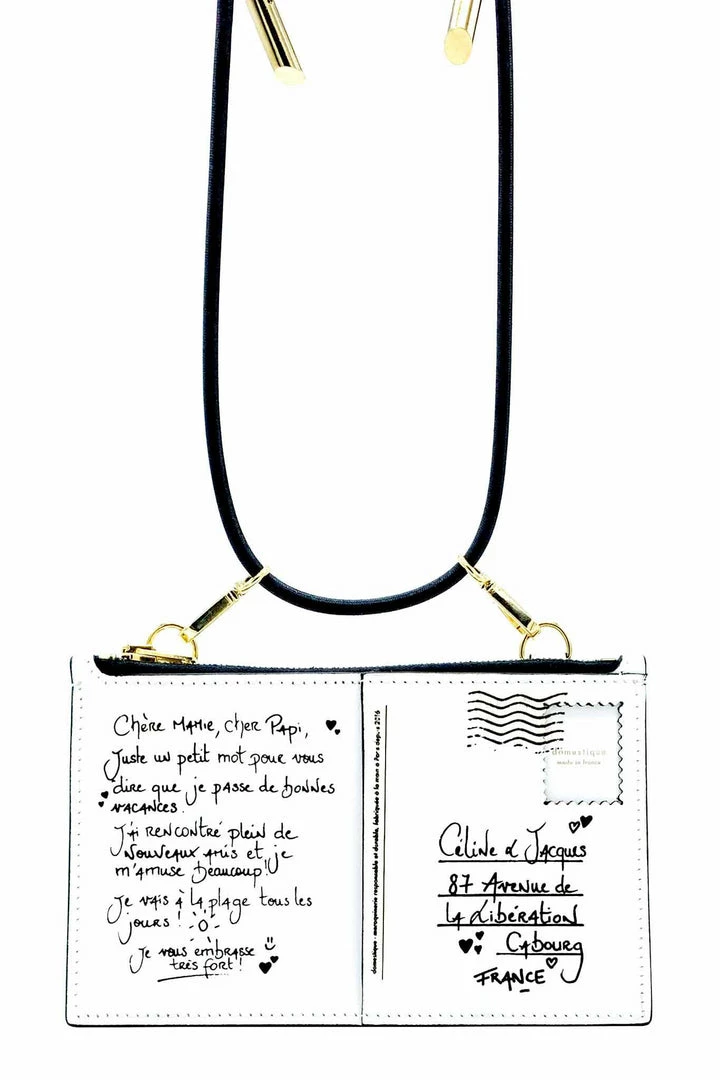 Chère Mamie, cher Papi,
Juste un petit mot pour vous
dire que je passe de bonnes
vacances.
J'ai rencontré plein de
nouveaux amis et je
m'amuse beaucoup!
Je vais à la plage tous les
jours !
Je vous embrasse
très fort !
domestique : maroquinerie responsable et durable, fabriquée à la main à Paris depuis 2016
domestique
made in france
Céline & Jacques
87 Avenue de
la Libération
Cabourg
FRANCE